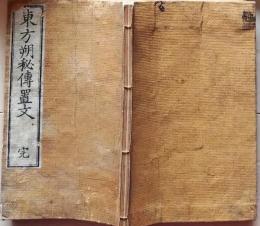 東方朔秘傳置文
完